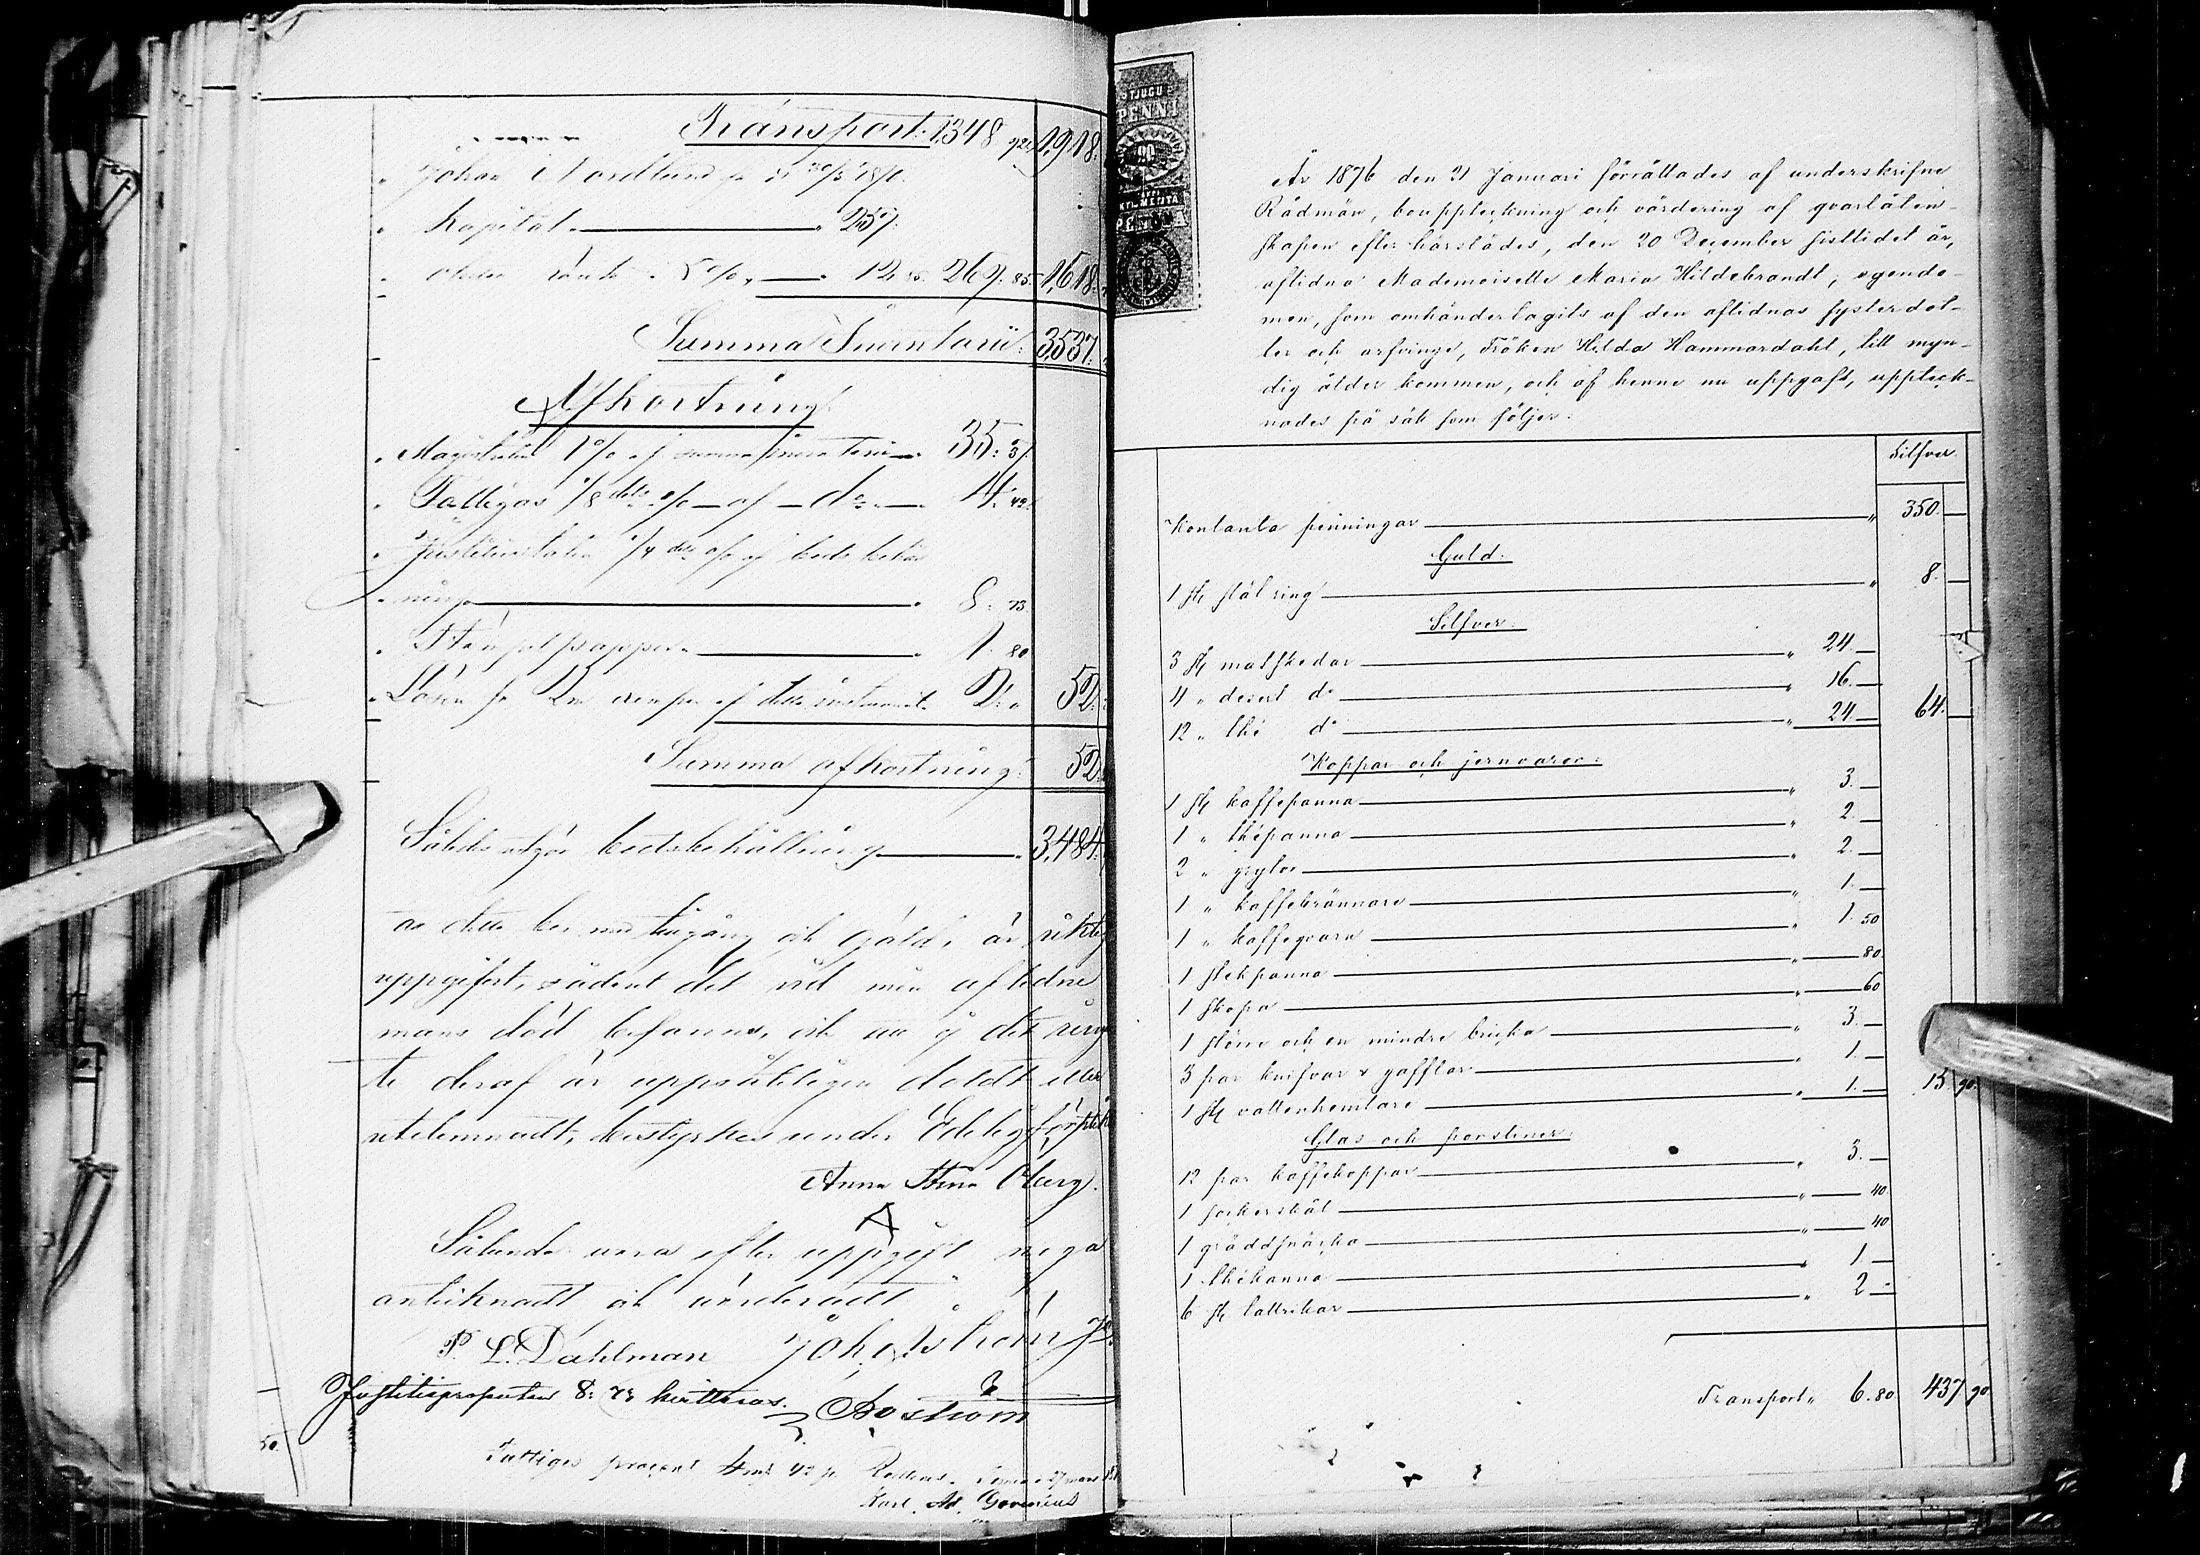 Transport. 1348 92 1,918:
" Johan Nordlund
" Kapital 257:
" ränta 5 % 12 85. 269. 85 1,618:
Summa Inventarii: 3537.
Afkortning:
" 1 % af summa inventarii 35: 37.
" Fattigas 1/8 dels % af do 4: 42.
" 1/4 dels % af behåll
ning 8: 73.
" Stämpelpapper 1. 80
" Lösen för af detta instrument 2: " 52:
Summa afkortning: 52:
Således utgör bodsbehållning 3,484:
att detta bo med tillgång och gäld, är riktig
uppgifvet, sådent det vid min aflidne
mans död befanns, och att ej det ring
te deraf är uppsåtligen doldt eller
utelemnadt, bestyrkes under Edelig förplik
Anna Stina Öberg.
Sålunda vara efter uppgift noga
antecknadt och värderadt
P. L. Dahlman Joh. Åström
Justitieprocenten 8: 73 kvitteras. Boström
Fattiges procent 4 m 42 p
Karl. Ad. Govenius
50.
TJUGU
PENNI
20
PENNIÄ
År 1876 den 21 Januari förrättades af underskrifne
Rådmän, bouppteckning och värdering af qvarlåten-
skapen efter härstädes, den 20 December sistlidet år,
aflidna Mademoiselle Maria Hildebrandt, egendo-
men, som omhändertagits af den aflidnas systerdot-
ter och arfvinge, Fröken Hilda Hammardahl, till myn-
dig ålder kommen, och af henne nu uppgafs, upptek-
nades på sätt som följer:
Silfver.
Kontanta penningar " 350. —
Guld.
1 st slät ring " 8. —
Silfver.
3 st matskedar " 24. —
4 " desert do " 16. —
12 " thé do " 24 — 64. —
Koppar och jernvaror:
1 st kaffepanna " 3. —
1 " thépanna " 2. —
2 " grytor " 2. —
1 " kaffebrännare " 1. —
1 " kaffeqvarn " 1. 50
1 stekpanna " — 80
1 skopa " — 60
1 större och en mindre bricka " 3. —
3 par knifvar & gafflar " 1. —
1 st vattenhemtare " 1. — 15 90.
Glas och porsliner:
12 par kaffekoppar " 3. —
1 sockerskål " — 40
1 gräddsnäcka " — 40
1 thékanna " 1 —
6 st tallrikar " 2 —
Transport " 6. 80 437 90